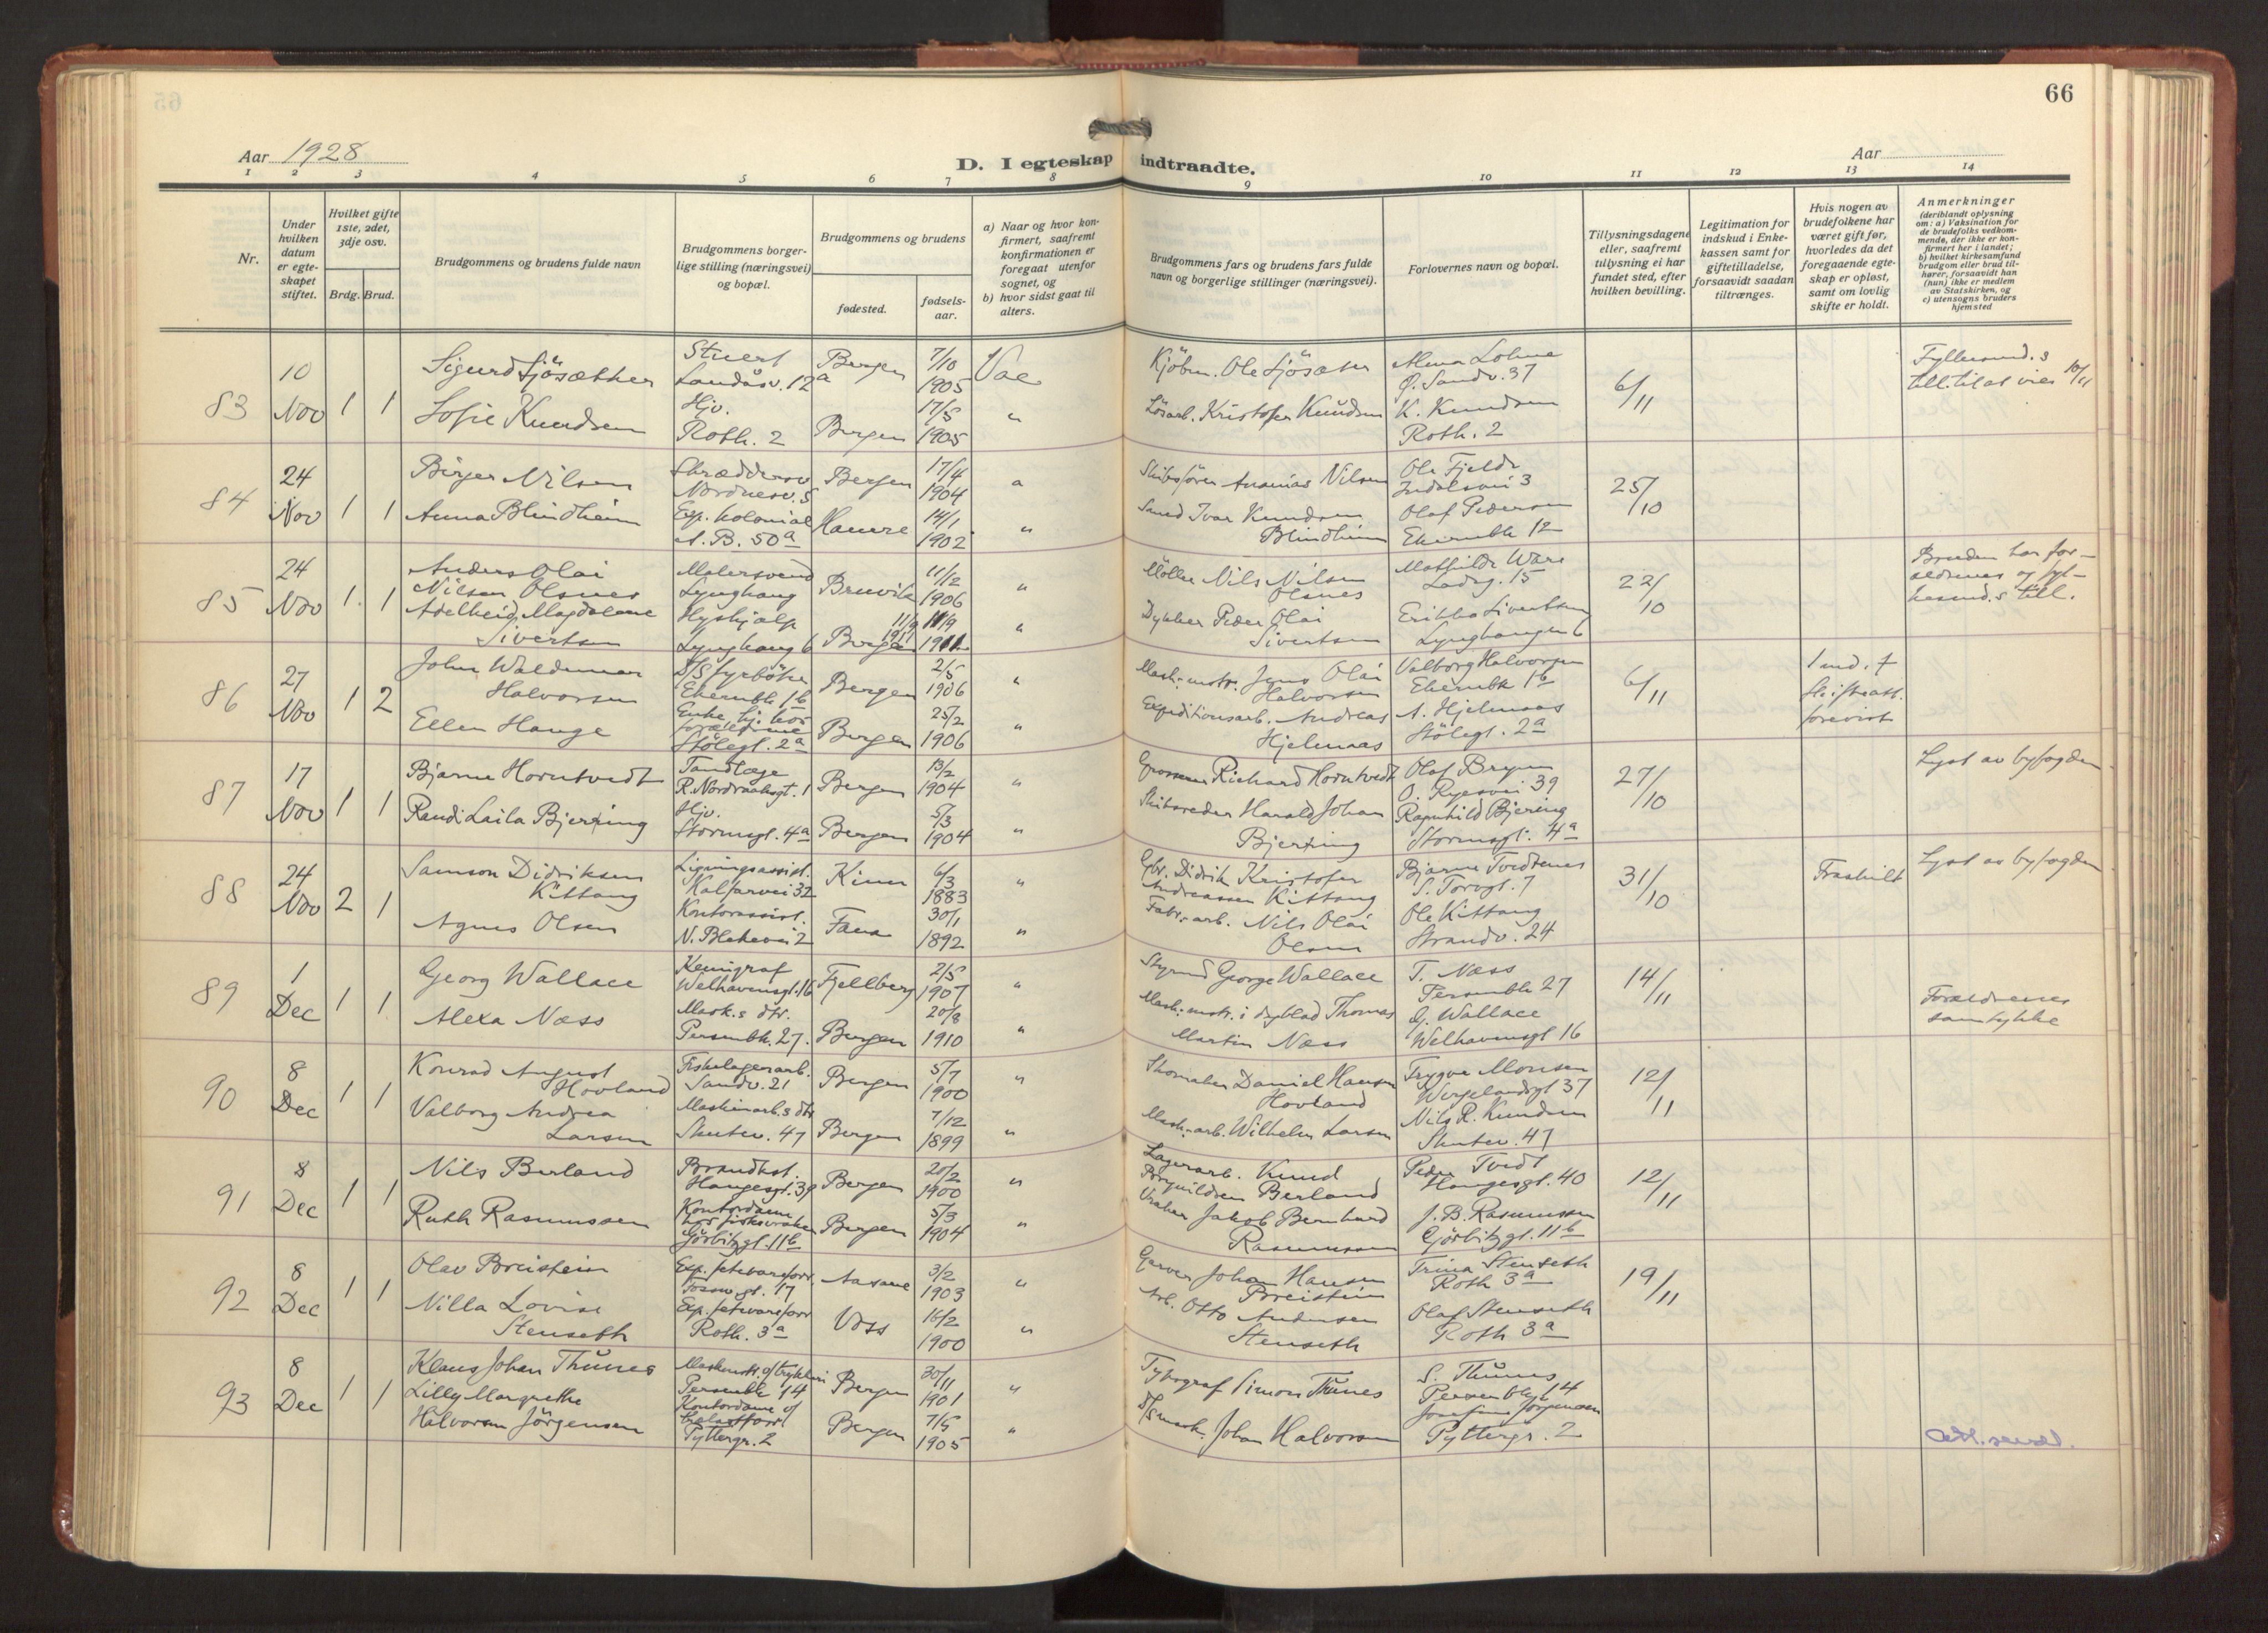 66
Aar 1928
D. I egteskap indtraadte.
Aar
1 2 3 4 5 6 7 8 9 10 11 12 13 14
Nr.
Under hvilken datum er egteskapet stiftet.
Hvilket gifte 1ste, 2det, 3dje osv.
Brdg. Brud.
Brudgommens og brudens fulde navn
Brudgommens borgerlige stilling (næringsvei) og bopæl.
Brudgommens og brudens
fødested.
fødselsaar.
a) Naar og hvor konfirmert, saafremt konfirmationen er foregaat utenfor sognet, og
b) hvor sidst gaat til alters.
Brudgommens fars og brudens fars fulde navn og borgerlige stillinger (næringsvei).
Forlovernes navn og bopæl.
Tillysningsdagene eller, saafremt tillysning ei har fundet sted, efter hvilken bevilling.
Legitimation for indskud i Enkekassen samt for giftetilladelse, forsaavidt saadan tiltrænges.
Hvis nogen av brudefolkene har været gift før, hvorledes da det foregaaende egteskap er opløst, samt om lovlig skifte er holdt.
Anmerkninger
(deriblandt oplysning om: a) Vaksination for de brudefolks vedkommende, der ikke er konfirmert her i landet;
b) hvilket kirkesamfund brudgom eller brud tilhører, forsaavidt han (hun) ikke er medlem av Statskirken, og
c) utensogns bruders hjemsted
83 10 Nov 1 1
Sigurd Sjösæther
Stuert
Landåsv. 12a
Bergen 7/10 1905
Kjöbm. Ole Sjösæter
Alma Lohne
Ø. Sandv. 37
6/11
Sofie Knudsen
Hjv.
Roth. 2
Bergen 17/5 1905 "
Lösarb. Kristofer Knudsen
K. Knudsen
Roth. 2
84 24 Nov 1 1
Birger Nilsen
Nordnesv. 5
Bergen 17/4 1904
Skibsförer Ananias Nilsen
Ole Fjelde
25/10
Anna Blindheim
Exp. kolonial
14/1 1902 "
Ivar Knudsen
Blindheim
Olaf Pedersen
85 24 Nov 1 1
Anders Olai
Nilsen Olsnes
Malersvend
Lynghaug
Bruvik 11/12 1906 "
Möller Nils Nilsen
Olsnes
Ladeg. 15
22/10
Bruden har for-
ældrenes og
Adelheid Magdalene
Sivertsen
Lynghaug 6
Bergen 11/9 1911 "
Dykker Peder Olai
Sivertsen
Lynghaugen 6
86 27 Nov 1 2
John Waldemar
Halvorsen
D/S fyrböter
Bergen 2/5 1906 "
Mask.mstr. Jens Olai
Halvorsen
Valborg Halvorsen
6/11
forevist
Ellen Hauge
Enke, hj. hos
forældrene
Stölegt. 2a
Bergen 25/2 1906 "
Expeditionsarb. Andreas
Hjelmaas
A. Hjelmaas
Stölegt. 2a
87 17 Nov 1 1
Bjarne Horntvedt
Tandlæge
R. Nordraaksgt. 1
Bergen 13/2 1904 "
Grosserer Richard Horntvedt
O. Ryesvei 39
27/10
Lyst av byfogden
Randi Laila Bjerring
Hjv.
Stormsgt. 4a
Bergen 5/3 1904 "
Skibsreder Harald Johan
Bjerring
Ragnhild Bjering
Stormsgt. 4a
88 24 Nov 2 1
Samson Didriksen
Kittang
Ligningsassist.
Kalfarvei 32
Kinn 6/3 1883 "
Gbr. Didrik Kristofer
Andreassen Kittang
Bjarne Tvedtenes
S. Torvgt. 7
31/10
Fraskilt
Lyst av byfogden
Agnes Olsen
Kontorassist.
N. Blekevei 2
Fana 30/1 1892 "
Fabr.-arb. Nils Olai
Olsen
Ole Kittang
Strandv. 24
89 1 Dec 1 1
Georg Wallace
Kemigraf
Welhavensgt. 16
Fjellberg 2/5 1907 "
Styrmd George Wallace
T. Næss
Persenbk 27
14/11
Forældrenes
samtykke
Alexa Næss
Mask.s dtr.
Persenbk. 27.
Bergen 20/8 1910 "
Mask.mstr. i Thomas
Martin Næss
G. Wallace
Welhavensgt 16
90 8 Dec 1 1
Konrad August
Hovland
Fiskelagerarb.
Sandv. 21
Bergen 5/7 1900 "
Skomaker Daniel Hansen
Hovland
Trygve Monsen
Wergelandsgt 37
12/11
Valborg Andrea
Larsen
Maskinarb.s dtr
Skutev. 47
Bergen 7/12 1899 "
Mask.-arb. Wilhelm Larsen
Nils R. Knudsen
Skutev. 47
91 8 Dec 1 1
Nils Berland
Haugesgt. 39
Bergen 20/2 1900 "
Lagerarb. Knud
Berland
Peder Tvedt
Haugesgt. 40
12/11
Ruth Rasmussen
Kontordame
hos fiskevraker
Görbitzgt. 11b
Bergen 5/3 1904 "
Vraker Jakob Bernhard
Rasmussen
J. B. Rasmussen
Görbitzgt. 11b
92 8 Dec 1 1
Olav Breistein
Exp. fetevareforr.
Aasane 3/2 1903 "
Garver Johan Hansen
Breistein
Trina Stenseth
Roth 3a
19/11
Nilla Lovise
Stenseth
Exp. fetevareforr
Roth. 3a
Voss 16/2 1900 "
Arb. Otto Andersen
Stenseth
Olaf Stenseth
Roth 3a
93 8 Dec 1 1
Klaus Johan Thunes
Persenbk 14
Bergen 30/11 1901 "
Typograf Simon Thunes
S. Thunes
Persenbk 14
Lilly Margrethe
Halvorsen Jörgensen
Kontordame
Pyttergr. 2
Bergen 7/5 1905 "
D/S mask. Johan Halvorsen
Josefine Jörgensen
Pyttergr. 2